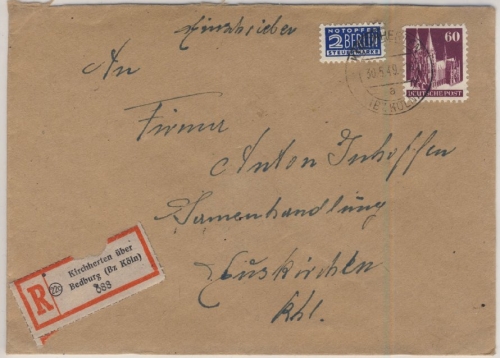 Einschreiben
NOTOPFER
2 BERLIN
STEUERMARKE
60
DEUTSCHE POST
An
Firma
Anton Inhoffen
Samenhandlung
Euskirchen
Rhl.
R
22c
Kirchherten über
Bedburg (Bz Köln)
588